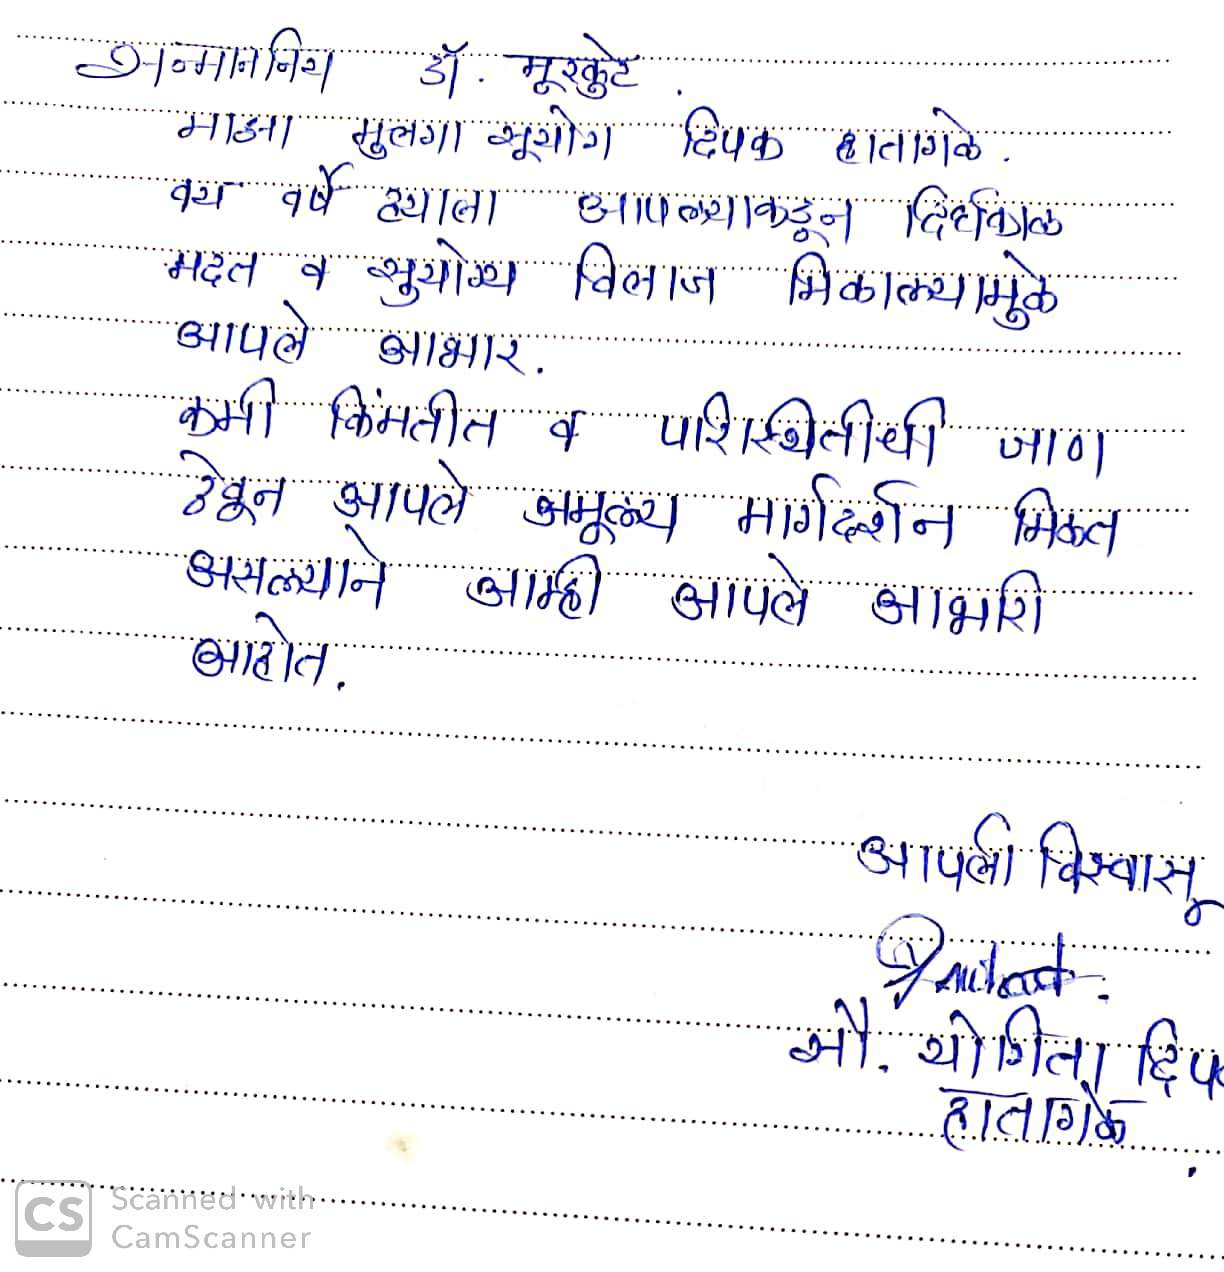 सन्माननिय डॉ. मूरकुटे.
माझा मुलगा सूयोग दिपक हातागळे.
वय वर्षे ह्याला आपल्याकडून दिर्घकाळ
मदत व सुयोग्य विलाज मिळाल्यामुळे
आपले आभार.
कमी किंमतीत व परिस्थितीची जाण
ठेवून आपले अमूल्य मार्गदर्शन मिळत
असल्याने आम्ही आपले आभारी
आहोत.
आपली विश्वासू
सौ. योगिता दिप
हातागळे
CS Scanned with
CamScanner